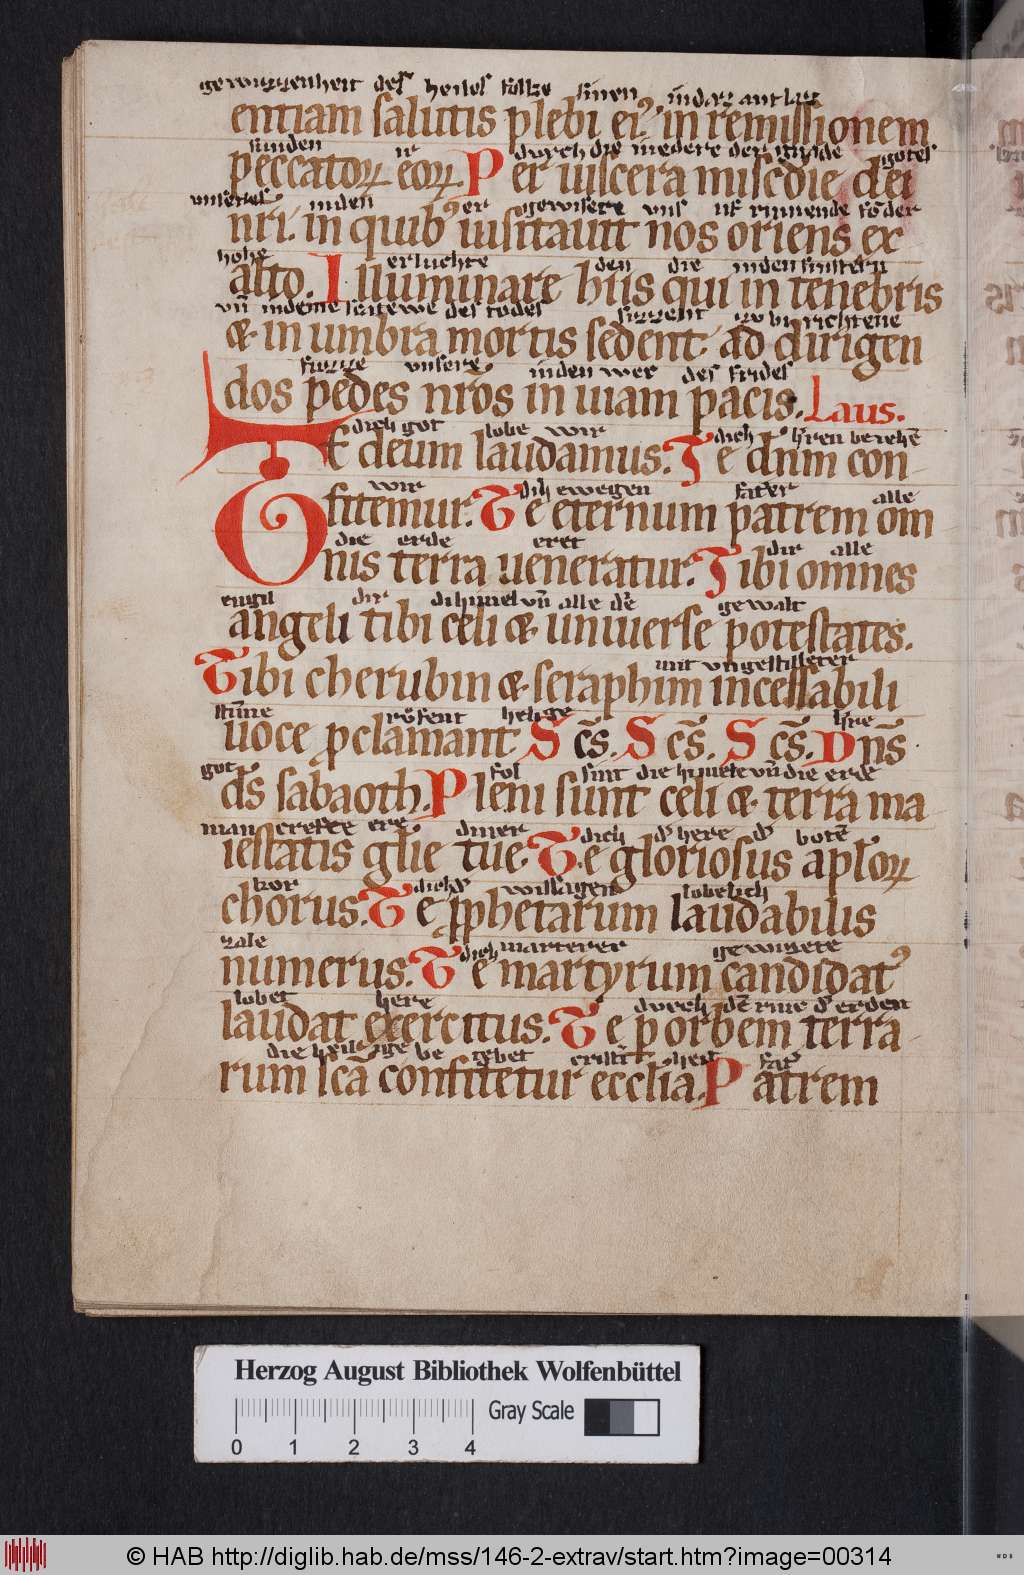 gewizzenheit des heiles folke sinen in daz antlaz
entiam salutis plebi ei⁹ in remissionem
sunden ir durch die inedere der gnade gotes
peccatoꝝ eoꝝ. Per uiscera misc̄die dei
unseres inden er gewisete uns uf rinnende fō der
nr̄i. in quib⁹ uisitauit nos oriens ex
hohe erluchte den die inden finstern
alto. Illuminare hiis qui in tenebris
vn̄ indeme scatewe des todes sizzent zo bir richtene
& in umbra mortis sedent ad dirigen
fuzze unsere inden wec des frides
dos pedes nr̄os in uiam pacis. Laus.
dich got lobe wir dich h̄ren beiehē
TE deum laudamus. Te dn̄m con
wir dih ewegen fater alle
fitemur. Te eternum patrem om
die erde eret dir alle
nis terra ueneratur. Tibi omnes
engil dir di himel vn̄ alle der gewalt
angeli tibi celi & uniuerse potestates.
mit ungestilleter
Tibi cherubin & seraphim incessabili
stimme rofent heilige h̄re
uoce ꝓclamant Sc̄s. Sc̄s. Sc̄s. Dn̄s
got fol sint die himele vn̄ die erde
ds̄ sabaoth. Pleni sunt celi & terra ma
man crefte ere diner dich d̄ here d̄ botē
iestatis gl̄ie tue. Te gloriosus apl̄oꝝ
kor dich d̄ wissagen lobelich
chorus. Te ꝓphetarum laudabilis
zale dich marterer gewizete
numerus. Te martyrum candidat⁹
lobet here durch dē rinc d̄ erden
laudat exercitus. Te ꝑ orbem terra
die heilige be gehet cristēheit fat̄
rum sc̄a confitetur eccl̄ia. Patrem
Herzog August Bibliothek Wolfenbüttel
Gray Scale
0 1 2 3 4
© HAB http://diglib.hab.de/mss/146-2-extrav/start.htm?image=00314